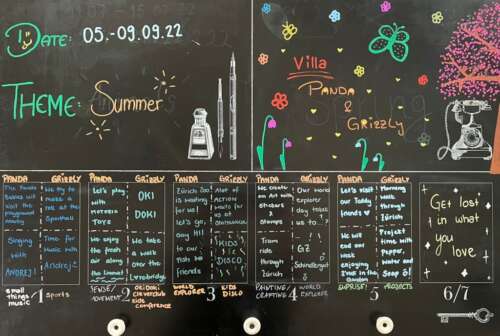 DATE: 05.-09.09.22
THEME: Summer
Villa
PANDA
&
GRIZZLY
PANDA
GRIZZLY
PANDA
GRIZZLY
PANDA
GRIZZLY
PANDA
GRIZZLY
PANDA
GRIZZLY
The Panda
Babies will
visit the
playground
nearby
We try to
make a
at the
Sporthall
Let's play
with
TOYS
OKI
DOKI
Zürich Zoo!
is waiting
for us!
Let's go,
say Hi!
to our
fish
friends
Alot of
Action
waits for
us at
We create
an Art with
&
Stamps
Our world
explorer
day takes
us to...?
Let's visit
our Teddy
friends
Morning
walk
through
Zürich
Singing
with
ANDREJ!
Time for
music with
Andrej!
We enjoy
the fresh
air along
the Limmat
We take
a walk
over the
KIDS
DISCO
Tram
ride
through
Zürich
GZ
We end
our week
enjoying
Indi in the
Garden
Projekt
time with
Pepper,
and
Snap
GET LOST
in what
you
love
small
things
music
1
sports
SENSE/
MOVEMENT
2
OkiDoki
kids
conference
WORLD
EXPLORER
3
KIDS
DISCO
PAINTING/
CRAFTING
4
WORLD
EXPLORER
5
PROJECTS
6/7